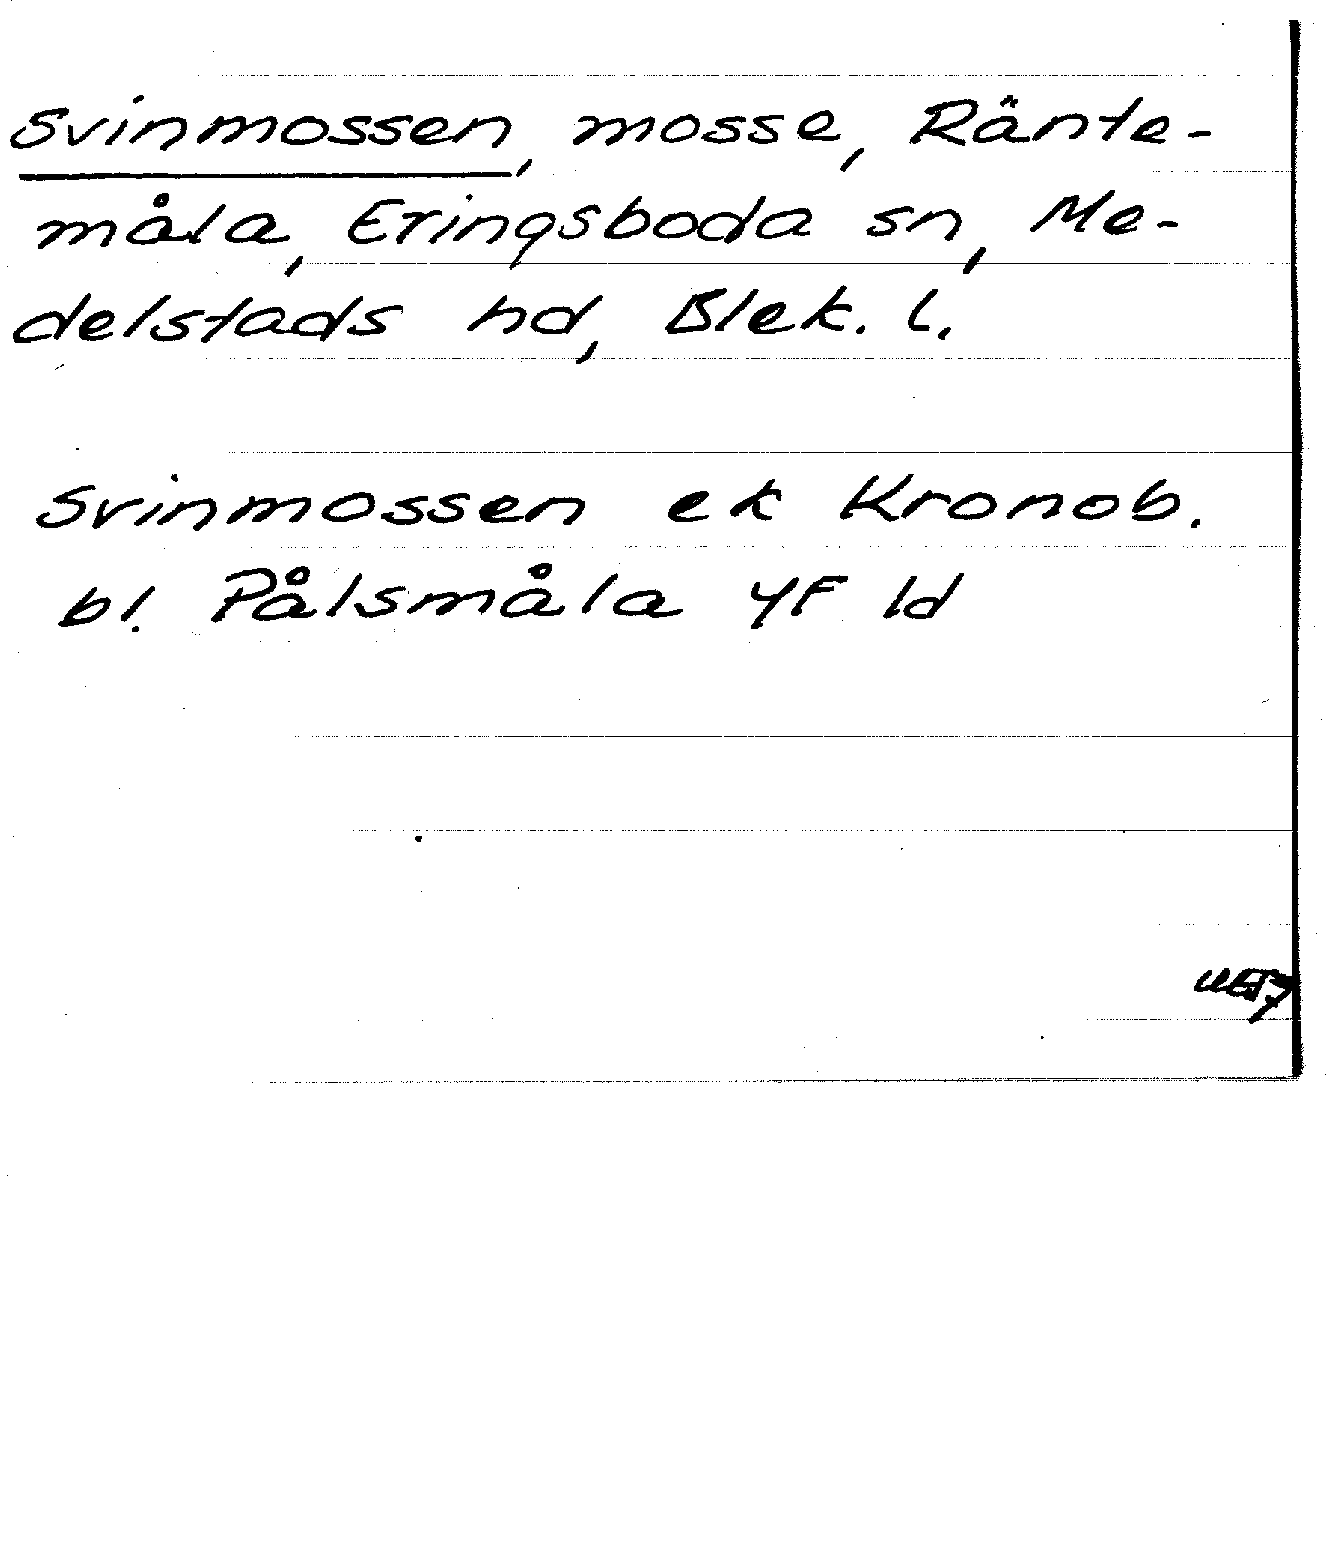 Svinmossen, mosse, Ränte-
måla, Eringsboda sn, Me-
delstads hd, Blek. l.
Svinmossen ek Kronob.
bl. Pålsmåla YF ld